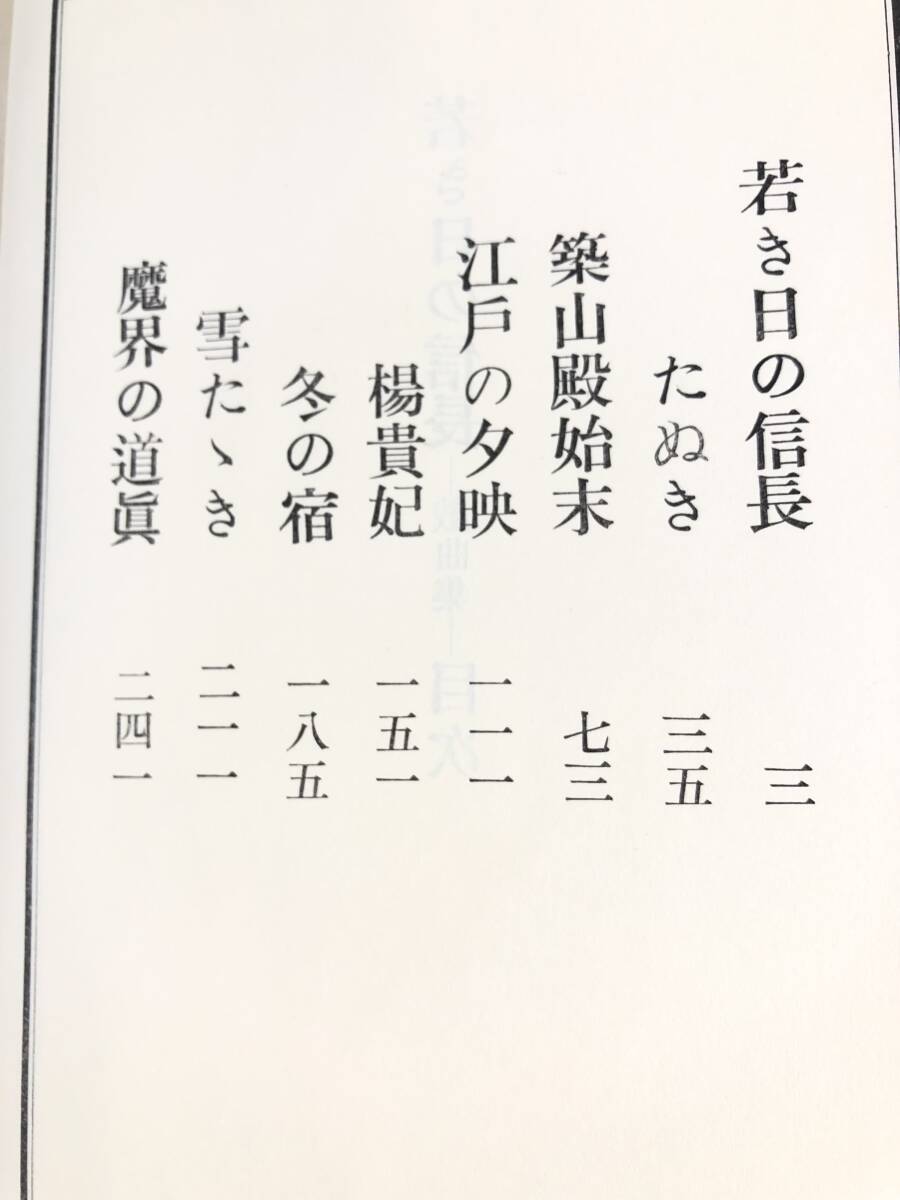 若き日の信長 三
たぬき 三五
築山殿始末 七三
江戸の夕映 一一一
楊貴妃 一五一
冬の宿 一八五
雪たゝき 二一一
魔界の道眞 二四一
若き日の信長―戯曲集―目次